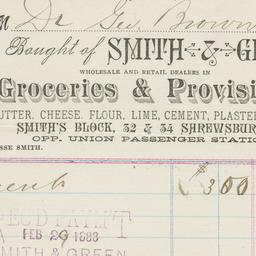 Dr Geo. Brown
Bought of SMITH & G
WHOLESALE AND RETAIL DEALERS IN
Groceries & Provisi
UTTER, CHEESE, FLOUR, LIME, CEMENT, PLASTE
SMITH'S BLOCK, 32 & 34 SHREWSBUR
OPP. UNION PASSENGER STATIO
SSE SMITH.
$3.00
REC'D PAYM'T
FEB 29 1888
SMITH & GREEN